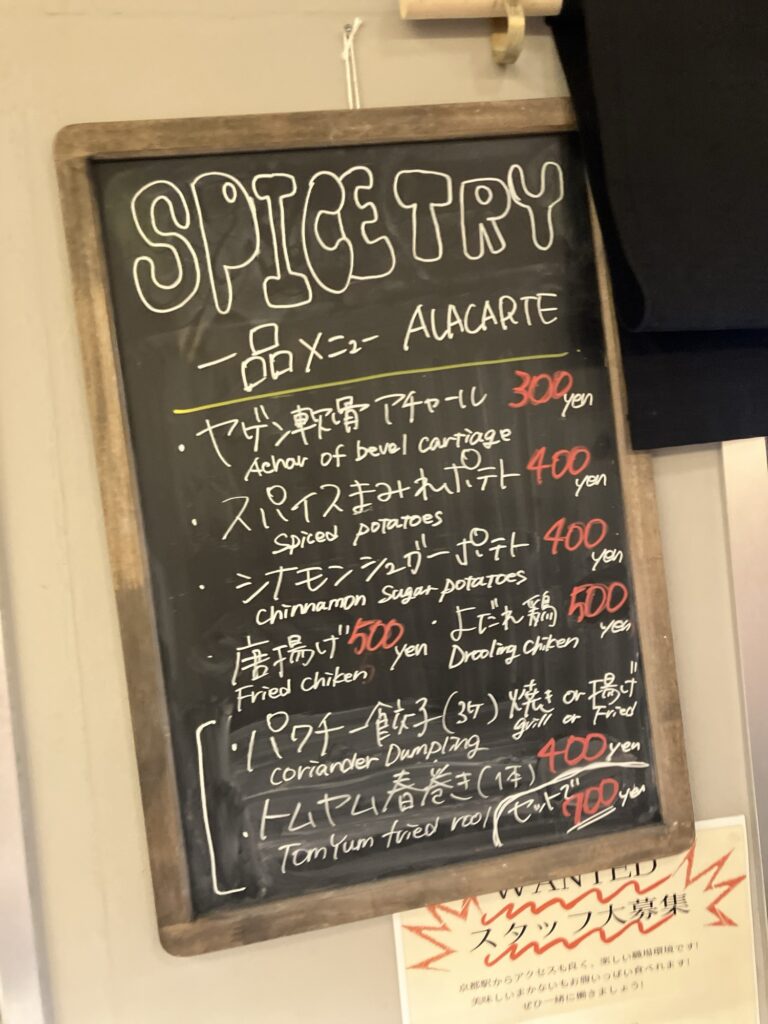 SPICE TRY
一品メニュー ALACARTE
・ヤゲン軟骨アチャール 300 yen
Achar of bevel cartiage
・スパイスまみれポテト 400 yen
Spiced potatoes
・シナモンシュガーポテト 400 yen
Chinnamon Sugar potatoes
・唐揚げ 500 yen ・よだれ鶏 500 yen
Fried Chiken Drooling chiken
・パクチー餃子(3ケ) 焼き or 揚げ
coriander Dumpling grill or Fried
400 yen
・トムヤム春巻き(1本) セットで 700 yen
TomYum fried rool
WANTED
スタッフ大募集
京都駅からアクセスも良く、楽しい職場環境です!
美味しいまかないもお腹いっぱい食べれます!
ぜひ一緒に働きましょう!